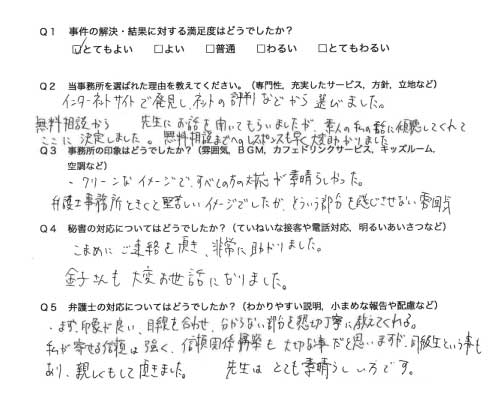 Q1 事件の解決・結果に対する満足度はどうでしたか？
☑とてもよい □よい □普通 □わるい □とてもわるい
Q2 当事務所を選ばれた理由を教えてください。（専門性，充実したサービス，方針，立地など）
インターネットサイトで発見し、ネットの評判などから選びました。
無料相談から 先生にお話を聞いてもらいましたが、素人の私の話に傾聴してくれて
ここに決定しました。無料相談までのレスポンスも早く大変助かりました
Q3 事務所の印象はどうでしたか？（雰囲気，BGM，カフェドリンクサービス，キッズルーム，
空調など）
・クリーンなイメージで、すべての方の対応が素晴らしかった。
弁護士事務所ときくと堅苦しいイメージでしたが、そういう部分を感じさせない雰囲気
Q4 秘書の対応についてはどうでしたか？（ていねいな接客や電話対応，明るいあいさつなど）
こまめにご連絡を頂き、非常に助かりました。
金子さんも大変お世話になりました。
Q5 弁護士の対応についてはどうでしたか？（わかりやすい説明，小まめな報告や配慮など）
・まず印象が良い、目線を合わせ、分からない部分を懇切丁寧に教えてくれる。
私が寄せる信頼は強く、信頼関係構築も大切な事だと思いますが、同級生という事も
あり、親しくもして頂きました。 先生はとても素晴らしい方です。